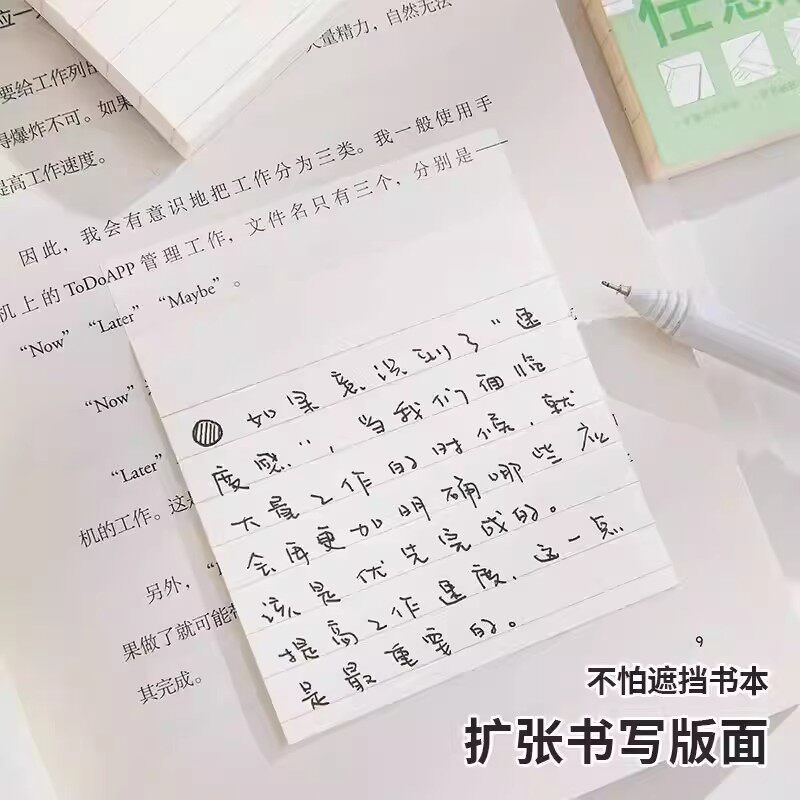 大量精力，自然无法
要给工作列
得爆炸不可。如果
提高工作速度。
因此，我会有意识地把工作分为三类。我一般使用手
机上的ToDoAPP管理工作，文件名只有三个，分别是——
“Now”“Later”“Maybe”。
“Now”
“Later”
机的工作。这
另外，“
果做了就可能
其完成。
如果意识到了“速
度感”，当我们面临
大量工作的时候，就
会再更加明确哪些应
该是优先完成的。
提高工作速度，这一点
是最重要的。
9
任意
不怕遮挡书本
扩张书写版面